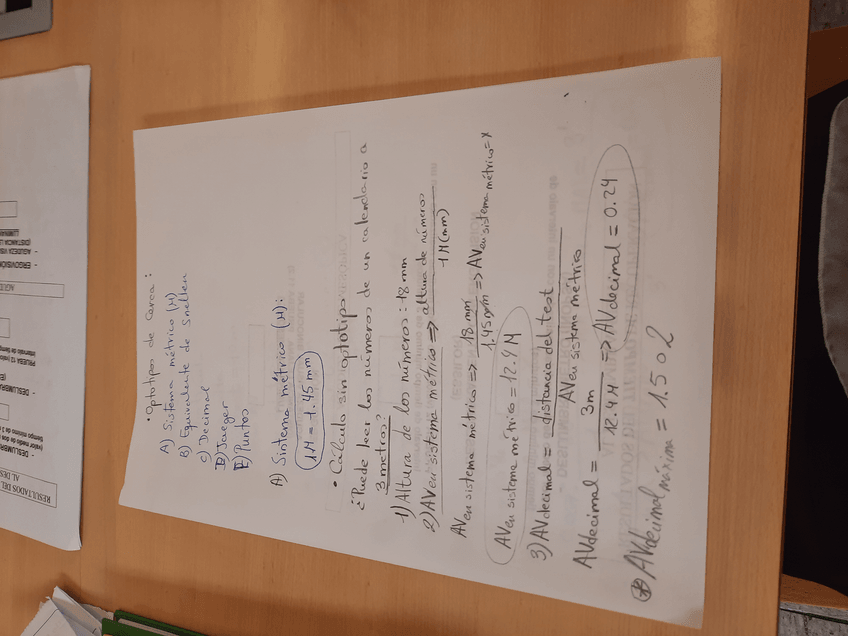 • Optotipos de cerca:
A) Sistema métrico (M)
B) Equivalente de Snellen
C) Decimal
D) Jaeger
E) Puntos
A) Sintema métrico (M):
1M = 1.45 mm
• Cálculo sin optotipo
¿Puede leer los números de un calendario a
3 metros?
1) Altura de los números: 18 mm
2) AV en sistema métrico => altura de números
1M (mm)
AV en sistema métrico => 18 mm
1.45 mm
=> AV en sistema métrico = X
AV en sistema métrico = 12.4 M
3) AV decimal = distancia del test
AV en sistema métrico
AV decimal = 3m
12.4 M
=> AV decimal = 0.24
AV decimal máxima = 1.5 o 2
RESULTADOS DEL
AL DES
- DESLUMBRA
- DESLUMBR
PRUEBA
- ERGOVISIÓN
- AGUDEZA VIS
(DISTANCIA LL